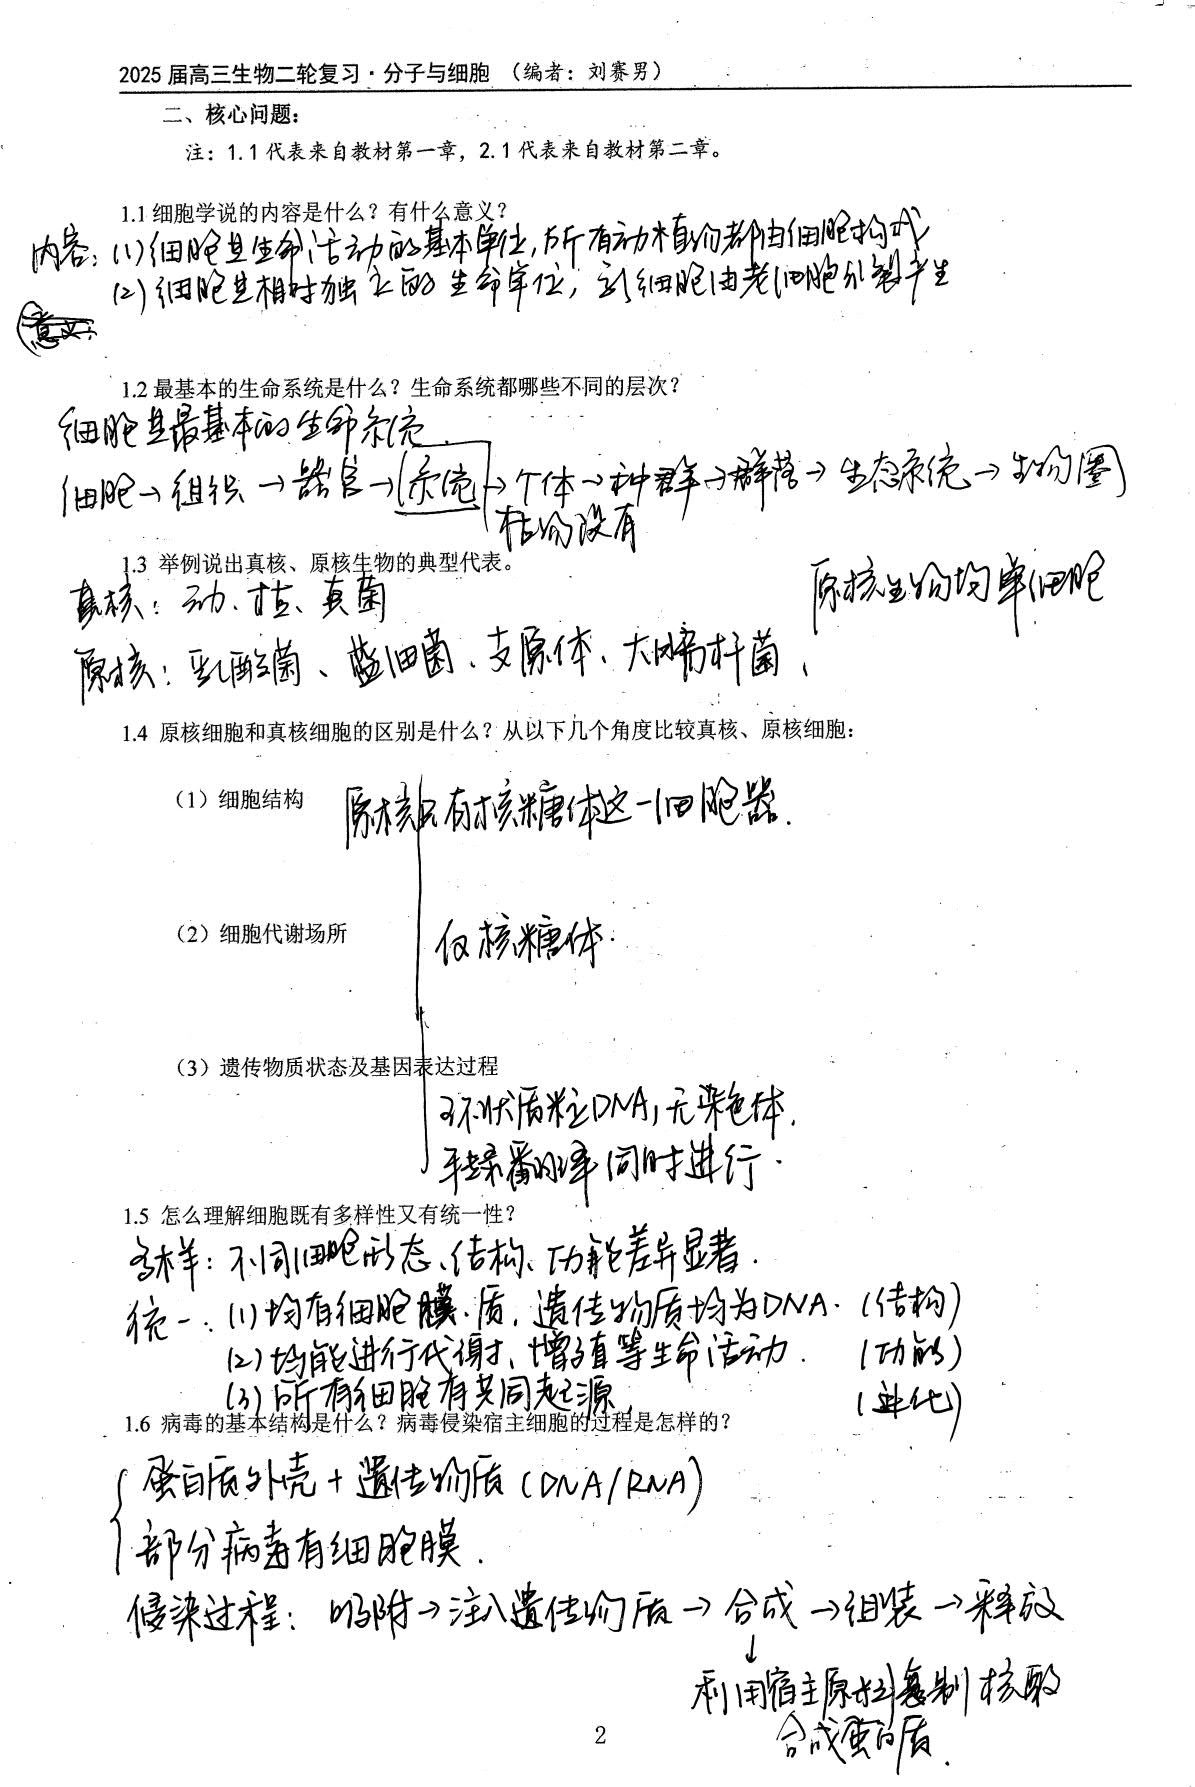 2025 届高三生物二轮复习·分子与细胞 （编者：刘赛男）
二、核心问题：
注：1.1 代表来自教材第一章，2.1 代表来自教材第二章。
1.1 细胞学说的内容是什么？有什么意义？
内容：(1) 细胞是生命活动的基本单位，所有动植物都由细胞构成
(2) 细胞是相对独立的生命单位，新细胞由老细胞分裂产生
意义：
1.2 最基本的生命系统是什么？生命系统都哪些不同的层次？
细胞是最基本的生命系统
细胞→组织→器官→系统→个体→种群→群落→生态系统→生物圈
植物没有
1.3 举例说出真核、原核生物的典型代表。
原核生物均单细胞
真核：动、植、真菌
原核：乳酸菌、蓝细菌、支原体、大肠杆菌、
1.4 原核细胞和真核细胞的区别是什么？从以下几个角度比较真核、原核细胞：
（1）细胞结构
原核只有核糖体这一细胞器.
（2）细胞代谢场所
仅核糖体.
（3）遗传物质状态及基因表达过程
环状质粒DNA，无染色体.
转录翻译同时进行.
1.5 怎么理解细胞既有多样性又有统一性？
多样：不同细胞形态、结构、功能差异显著.
统一：(1) 均有细胞膜.质，遗传物质均为DNA. (结构)
(2) 均能进行代谢、增殖等生命活动. (功能)
(3) 所有细胞有共同起源, (进化)
1.6 病毒的基本结构是什么？病毒侵染宿主细胞的过程是怎样的？
蛋白质外壳+遗传物质(DNA/RNA)
部分病毒有细胞膜.
侵染过程：吸附→注入遗传物质→合成→组装→释放
↓
利用宿主原料复制核酸
合成蛋白质.
2